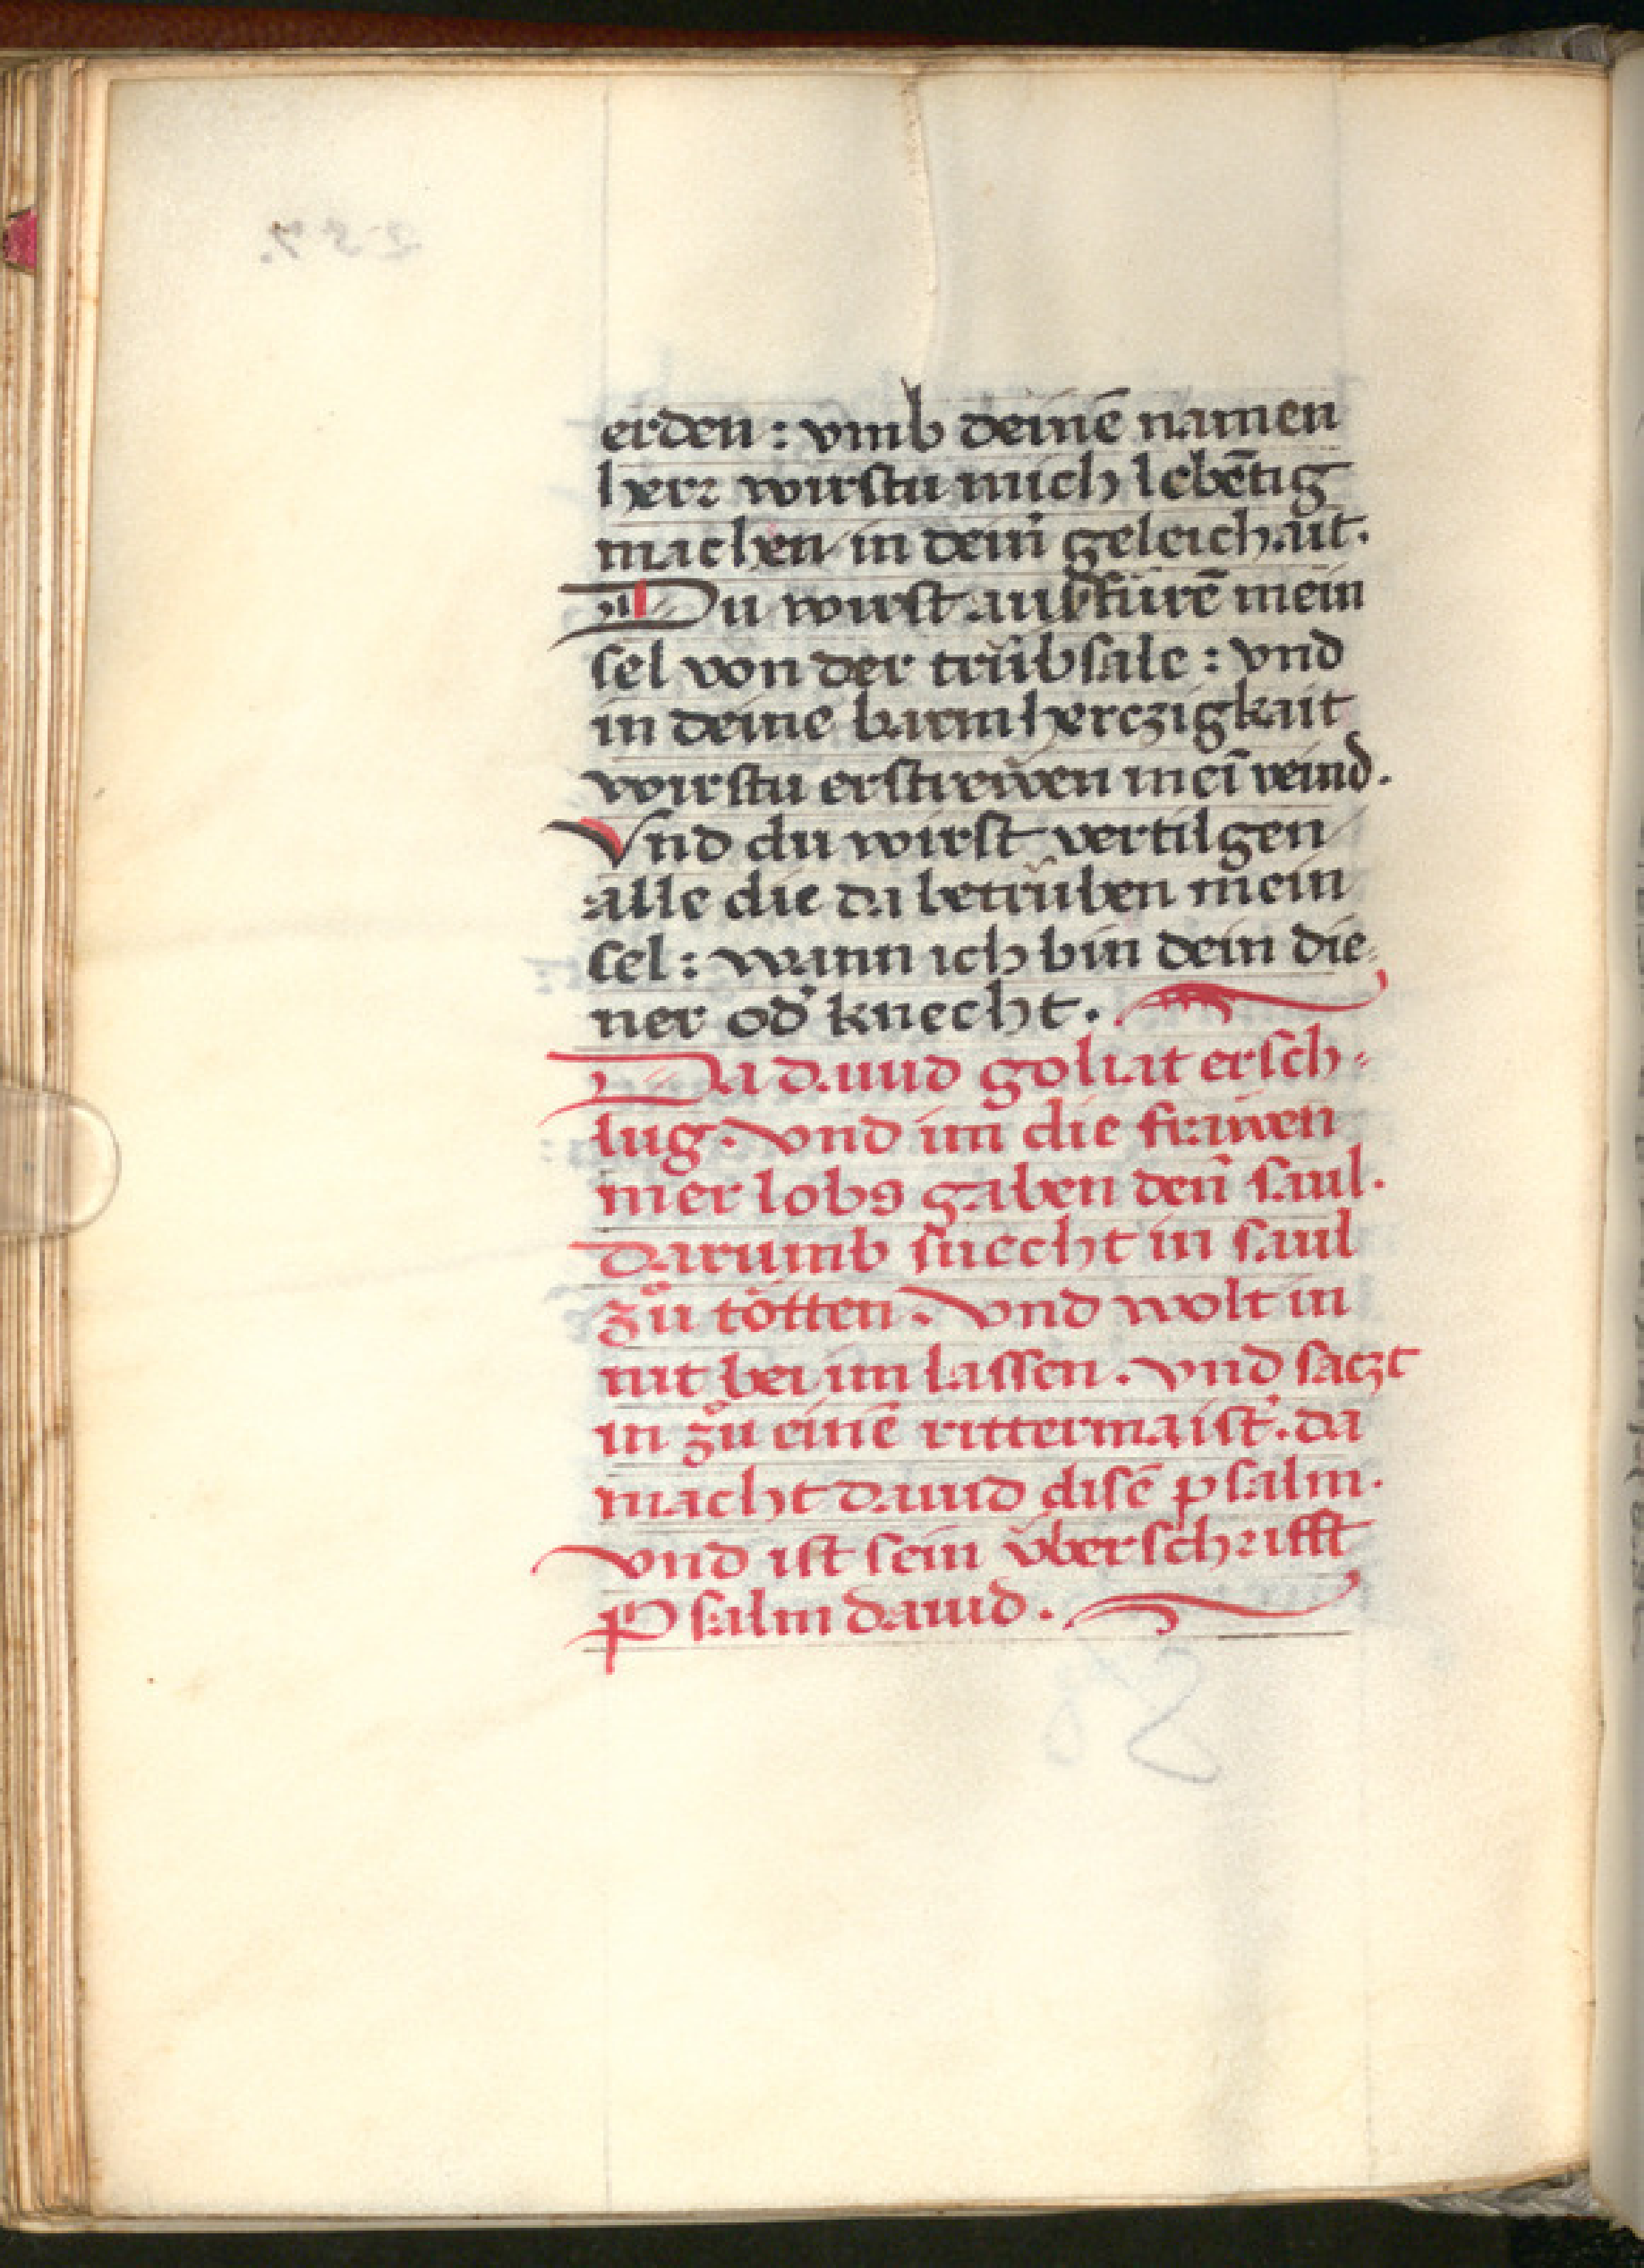 erden : vmb deinē namen
herr wirstu mich lebētig
machen in dein̄ geleichait.
Du wirst außfürē mein
sel von der trübsale : vnd
in deine barmherczigkait
wirstu erströwen mei᷑ veind.
Vnd du wirst vertilgen
alle die da betrüben mein
sel : wann ich bin dein die⸗
ner od᷑ knecht.
Da dauid goliat ersch⸗
lug. vnd im die frawen
mer lobs gaben deñ saul.
darumb suecht in saul
zů tötten. vnd wolt in
nit bei im lassen. vnd saczt
in zů einē rittermaist᷑. da
macht dauid disē psalm.
vnd ist sein überschrifft
Psalm dauid.